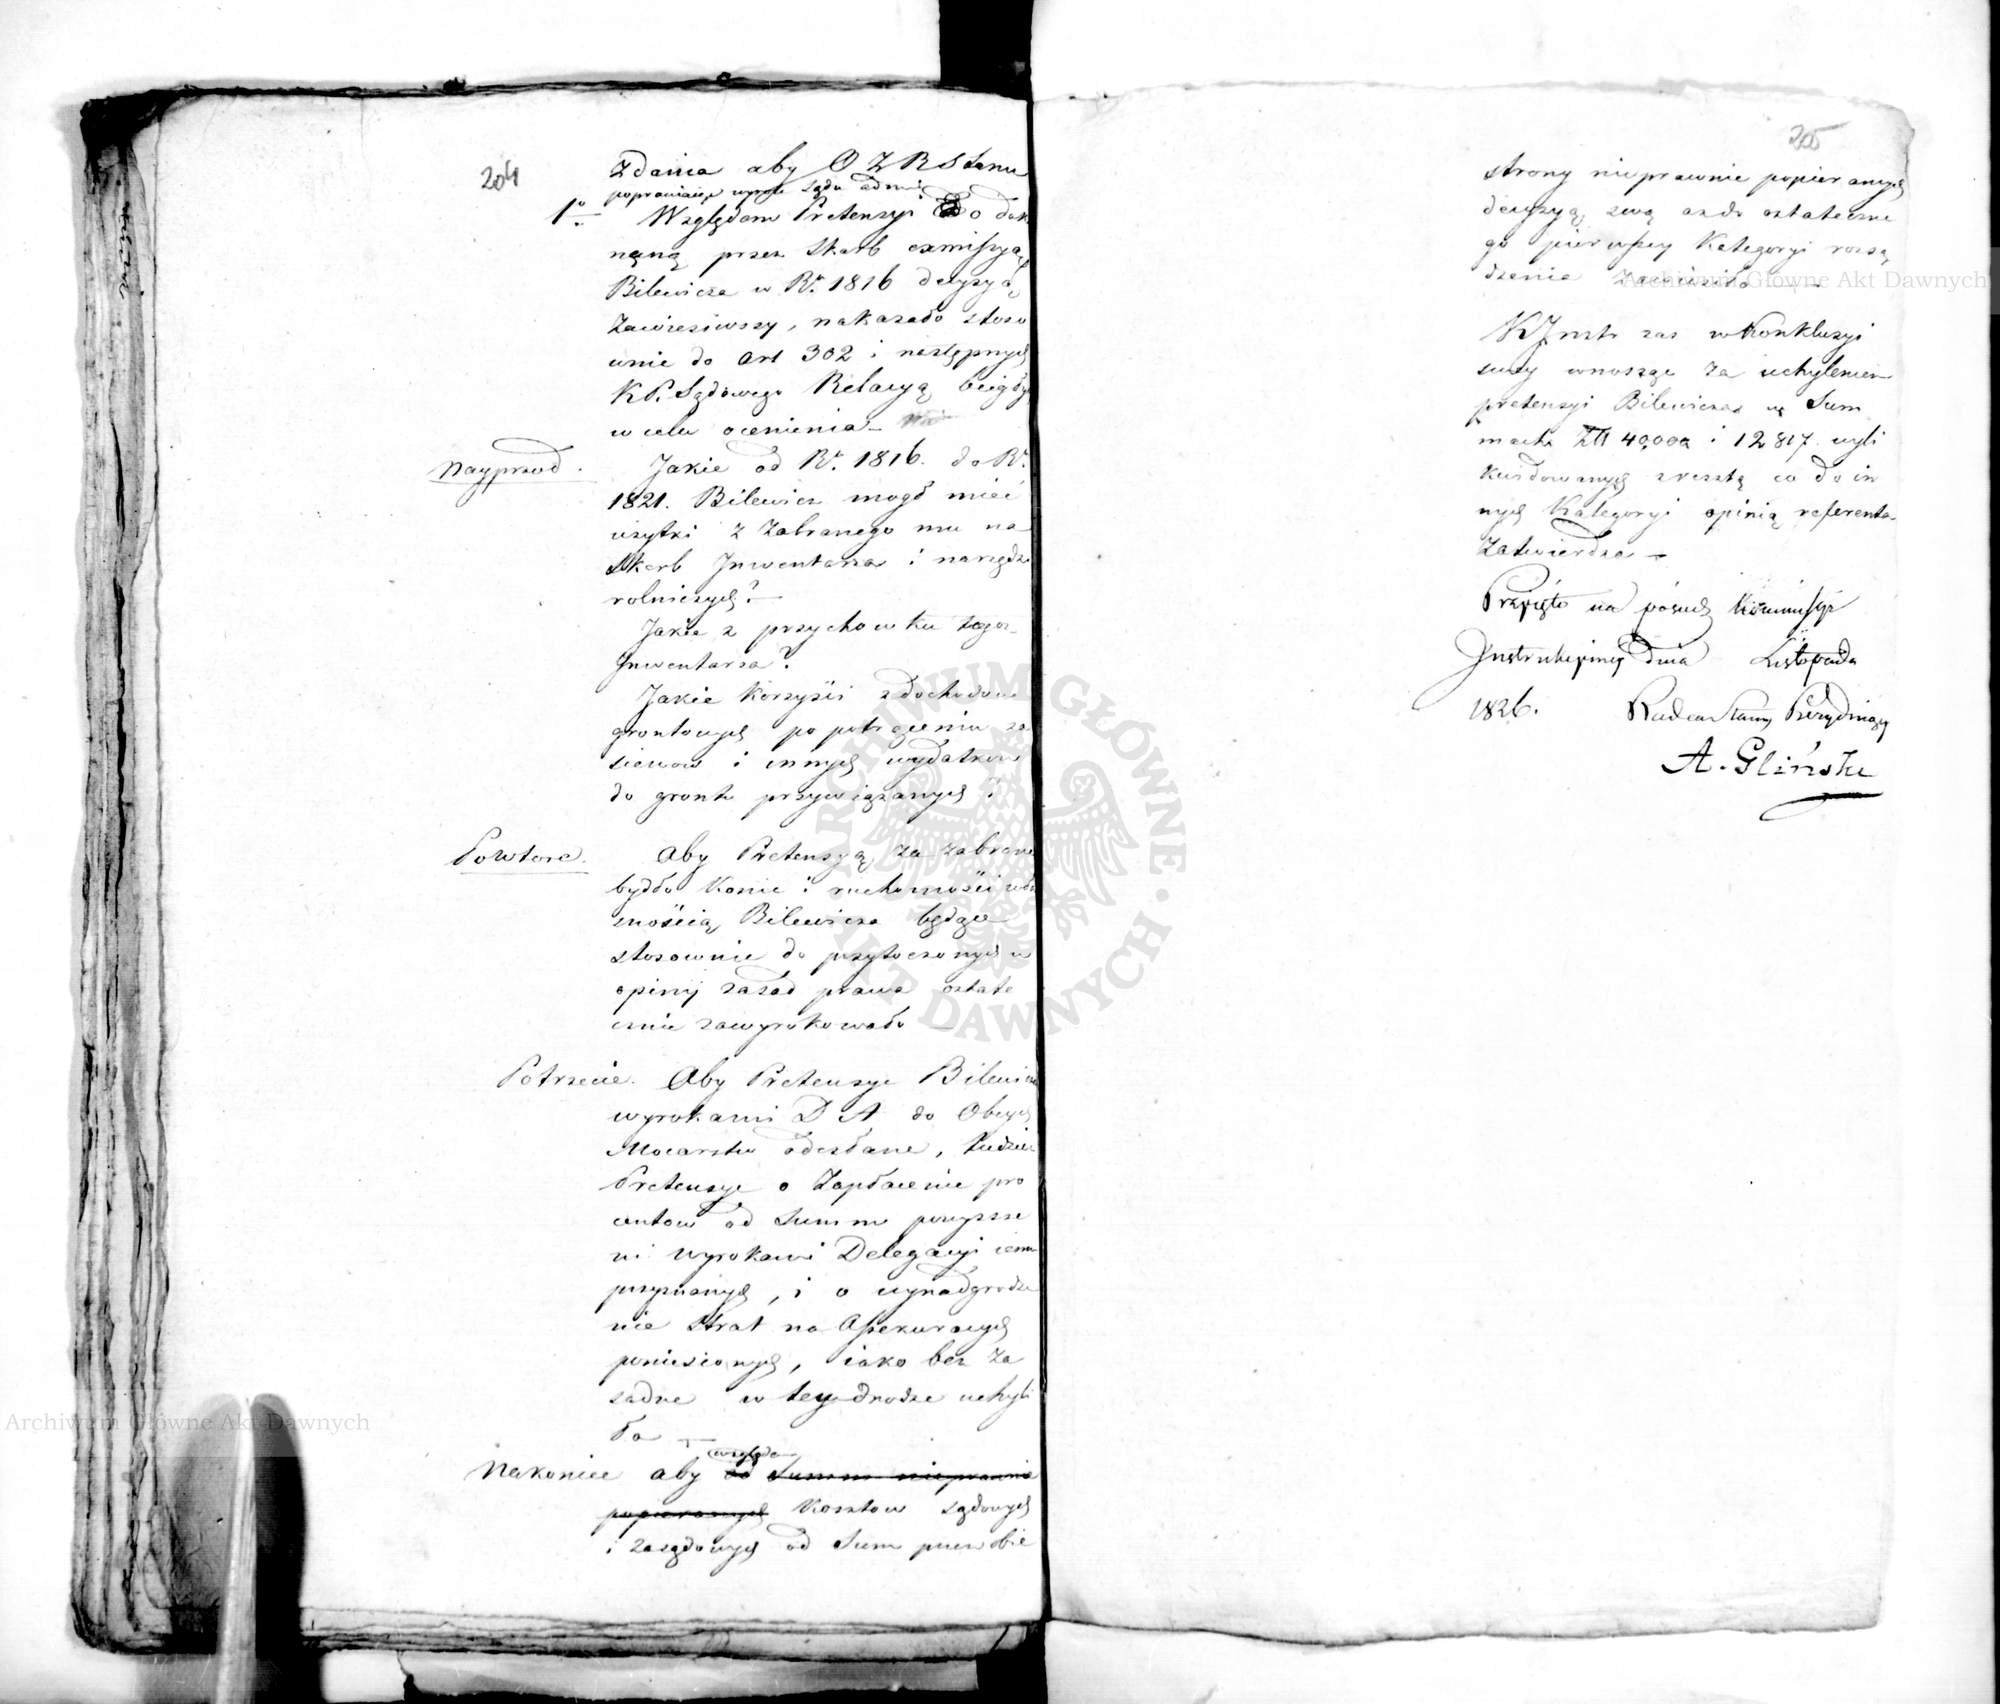 204
zdania aby O Z R Stanu
poprawiaiąc wyrok Sądu admi
1o Względem Pretensyi o dok
naną przez Skarb exmissyą
Bilewicza w Ru. 1816 decyzyą
zawiesiwszy, nakazało stoso
wnie do art 302 i następnych
K P. Sądowego Relacyą biegłych
w celu ocenienia
Nayprzod. Jakie od Ru. 1816. do Ru.
1821. Bilewicz mogł mieć
użytki z zabranego mu na
Skarb Inwentarza i narzędzi
rolniczych?
Jakie z przychowku tegoż
Inwentarza?
Jakie korzyści z dochodow
grontowych po potrąceniu za
siewow i innych wydatkow
do grontu przywiązanych?
Powtore. Aby Pretensyą za zabrane
bydło konie i ruchomości wła
snością Bilewicza będące
stosownie do przytoczonych w
opinij zasad prawa ostate
cznie zawyrokowało
Potrzecie. Aby Pretensye Bilewicza
wyrokami D A do Obcych
Mocarstw odesłane, tudzież
Pretensye o Zapłacenie pro
centow od Summ powyższe
mi wyrokami Delegacyi iemu
przyznanych, i o wynadgrodze
nie strat na Assekuracyach
poniesionych, iako bez za
sadne w tey drodze uchyli
ło
względem
Nakoniec aby od Summ nieprawnie
popieranych Kosztow sądowych
i zasądowych od Sum przez obie
205
strony nieprawnie popieranych
decyzyą swą aż do ostateczne
go pierwszey Kategoryi rozsą
dzenia zawiesiło
K Instr zaś w Konkluzyi
swey wnosząc za uchyleniem
pretensyi Bilewicza w Sum
mach Złł 40,000 i 12817 wyli
kwidowanych zresztą co do in
nych Kategoryi opinią referenta
Zatwierdza
Przyięto na posiedz Kommissyi
Instrukcyiney dnia Listopada
1826. Radca Stanu Prezyduiący
A. Gliński
Archiwum Główne Akt Dawnych
Archiwum Główne Akt Dawnych
ARCHIWUM GŁÓWNE AKT DAWNYCH